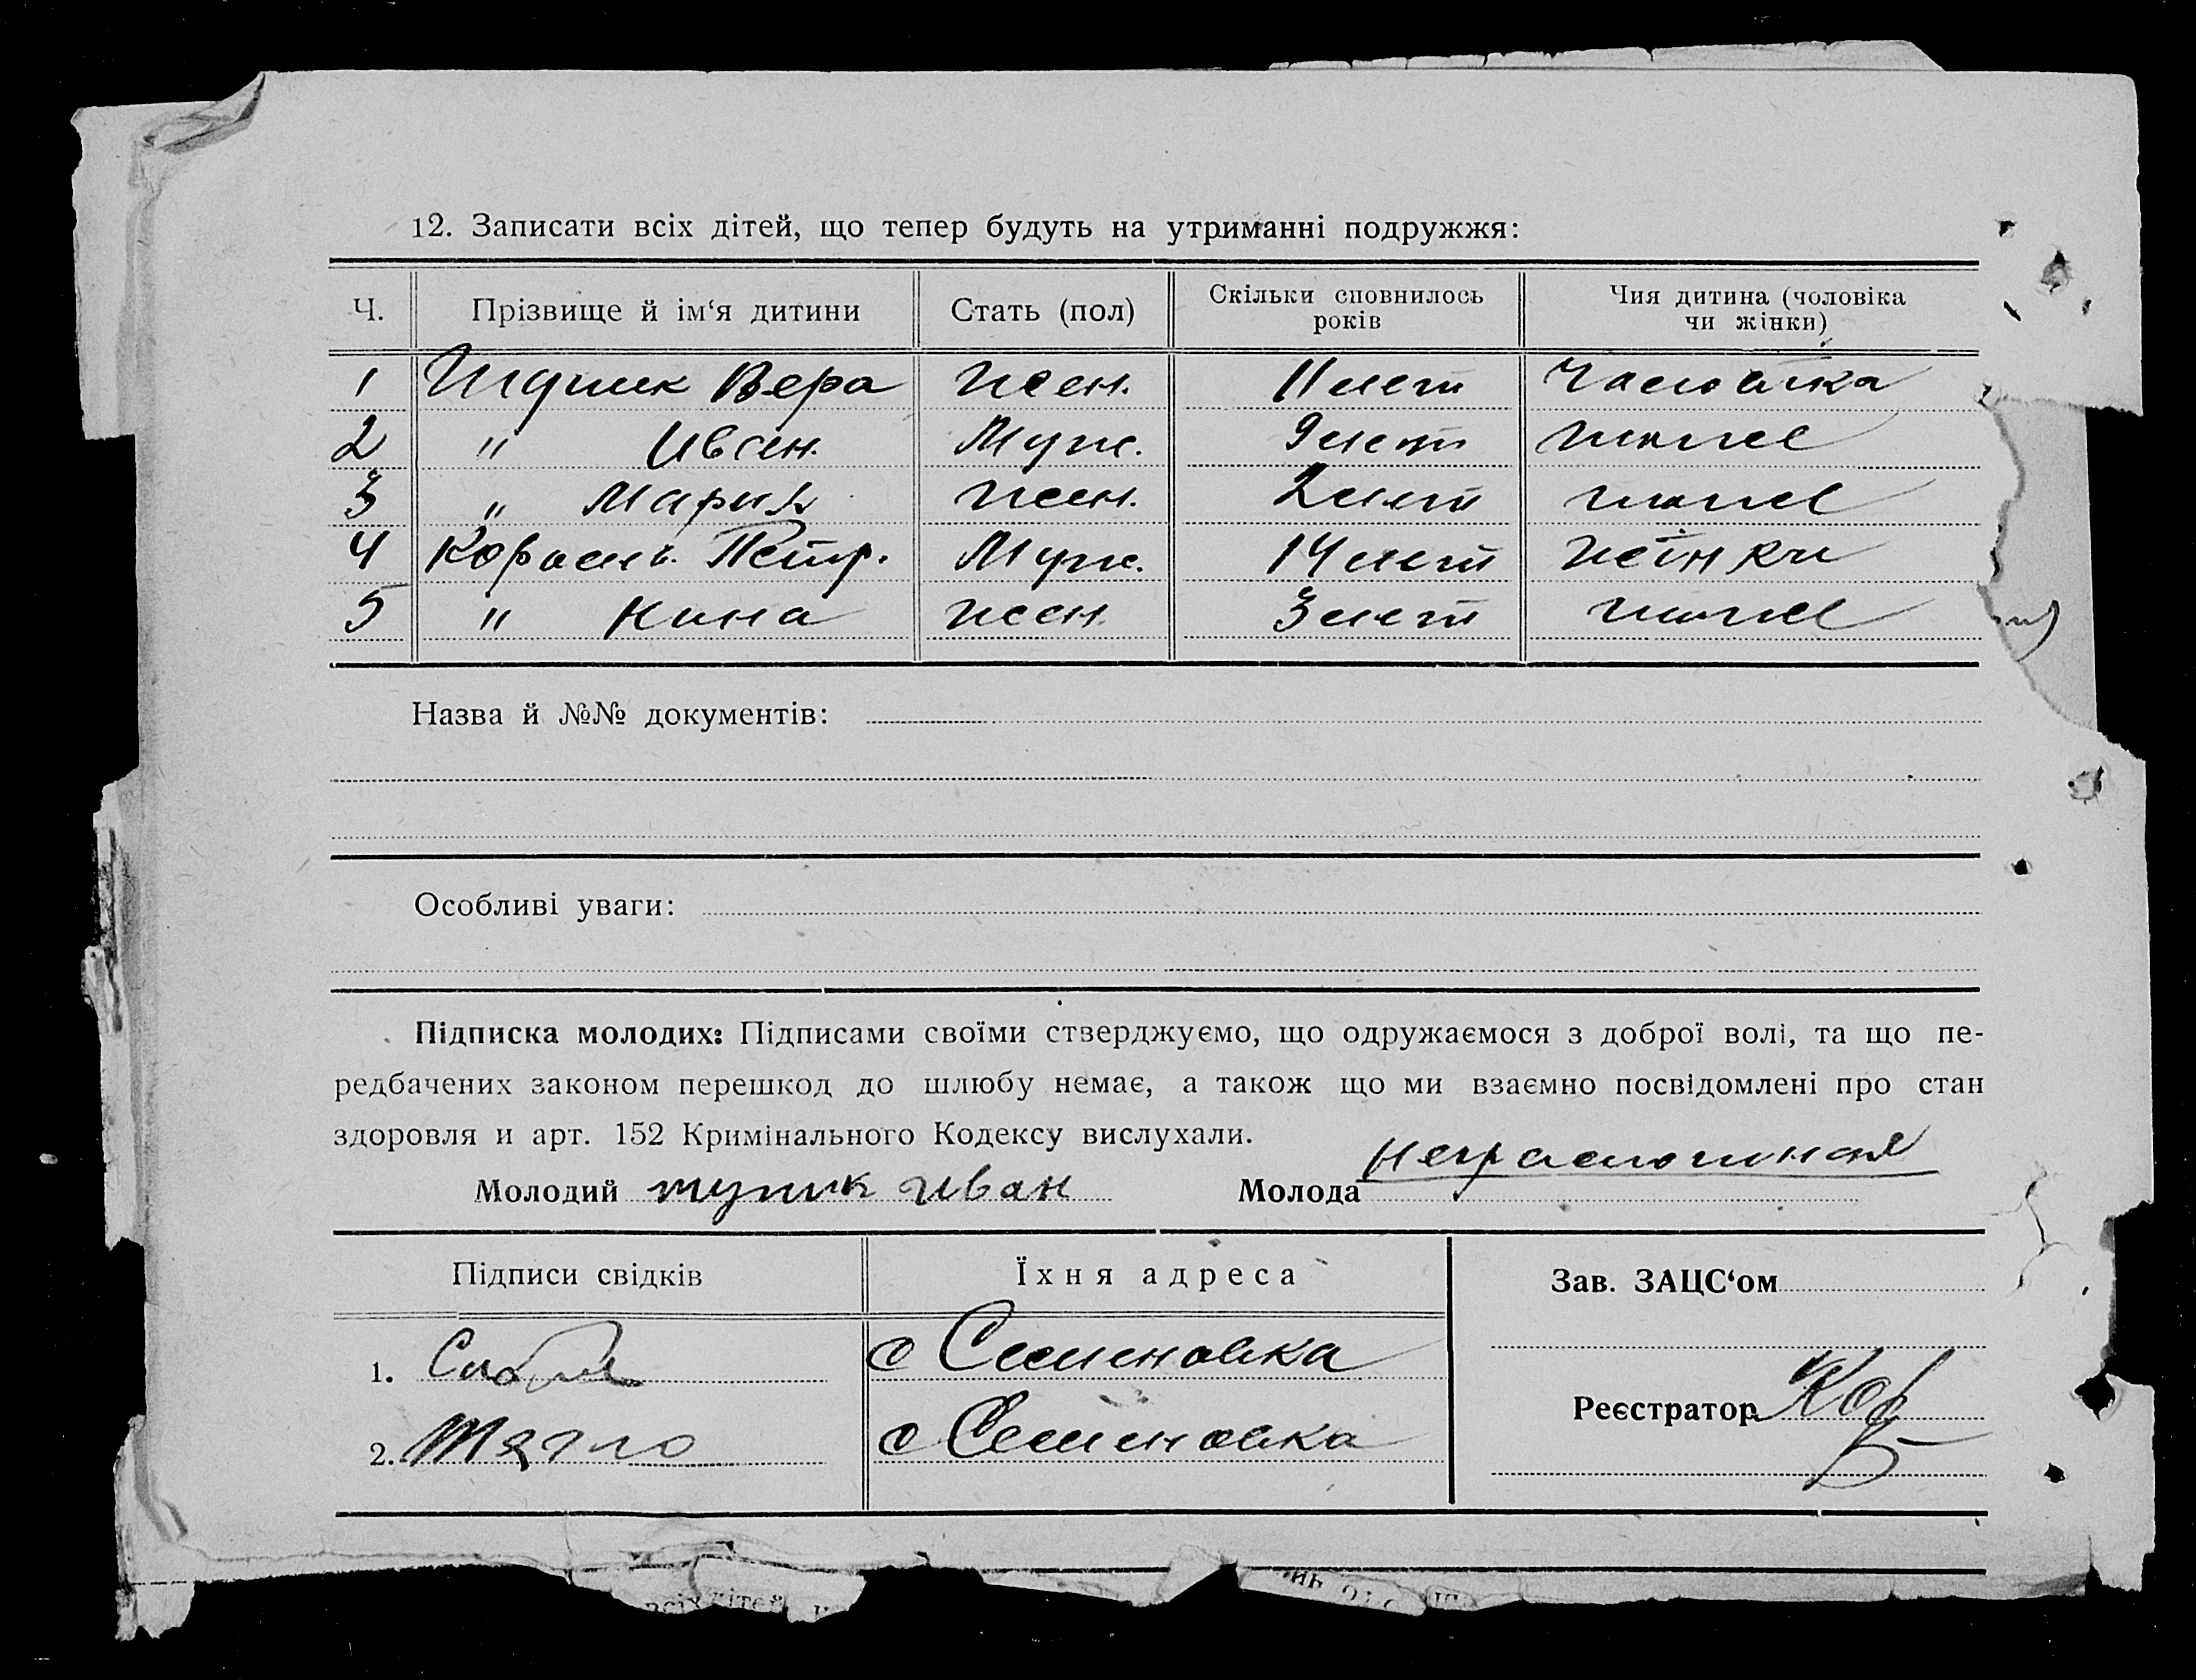 12. Записати всіх дітей, що тепер будуть на утриманні подружжя:
Ч. Прізвище й ім‘я дитини Стать (пол) Скільки сповнилось років Чия дитина (чоловіка чи жінки)
1 Вера жен. 11 лет
2 " Иван. Муж. 9 лет тоже
3 " Мария жен. 2 лет тоже
4 Петр. Муж. 14 лет жінки
5 " Нина жен. 3 лет тоже
Назва й №№ документів:
Особливі уваги:
Підписка молодих: Підписами своїми стверджуємо, що одружаємося з доброї волі, та що пе-
редбачених законом перешкод до шлюбу немає, а також що ми взаємно посвідомлені про стан
здоровля и арт. 152 Кримінального Кодексу вислухали.
Молодий Иван Молода неграмотная
Підписи свідків Їхня адреса Зав. ЗАЦС‘ом
1. с Семеновка
Реєстратор Кор
2. Тягло с Семеновка
всіх дітей